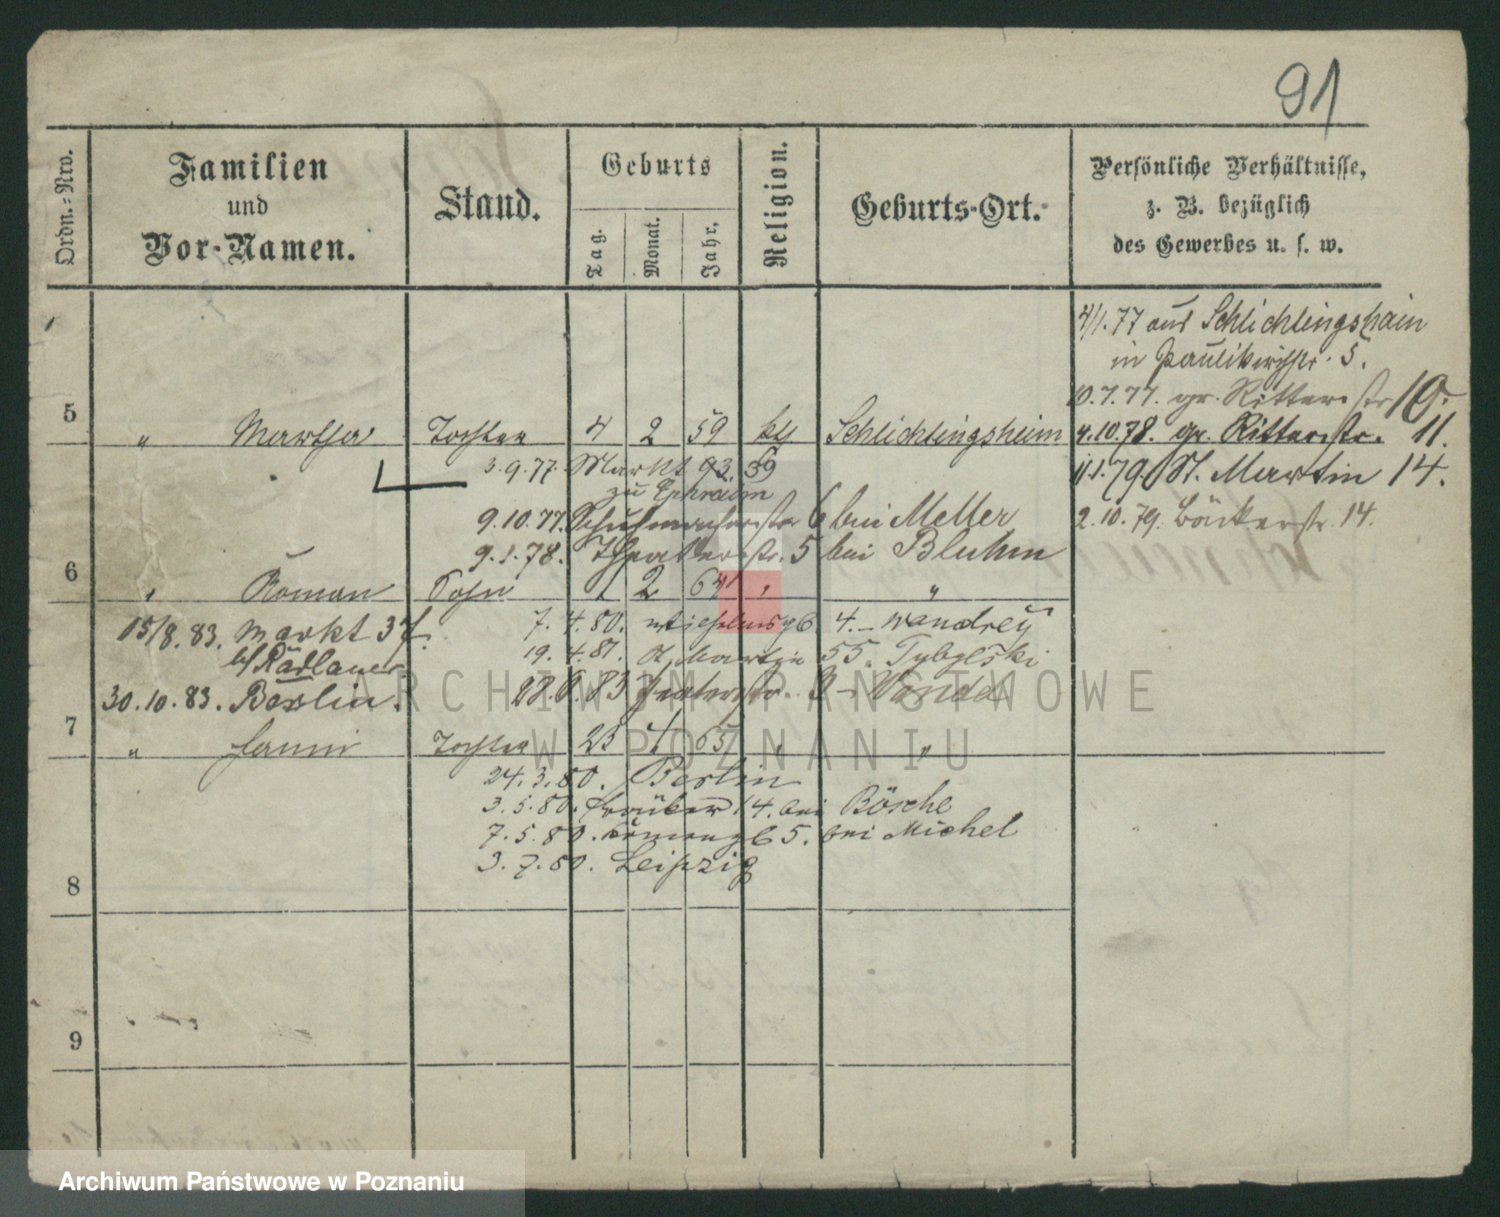 91
Ordn.-Nro.
Familien
und
Vor-Namen.
Stand.
Geburts
Tag.
Monat.
Jahr.
Religion.
Geburts-Ort.
Persönliche Verhältnisse,
z. B. bezüglich
des Gewerbes u. s. w.
4/1. 77 aus Schlichtingshain
in Paulikirchstr. 5.
10. 7. 77. gr. Ritterstr 10.
5 " Martha Tochter 4 2 59 Schlichtingsheim 4. 10. 78. gr. Ritterstr. 11.
3. 9. 77. Markt 93
1. 79. St. Martin 14.
zu Ephraim
9. 10. 77. Schuhmacherstr 6 bei Meller
2. 10. 79. Bäckerstr. 14.
9. 1. 78. Theaterstr. 5 bei Bluhm
6 " Roman Sohn 1 2 64 " "
15/8. 83. Markt 37.
7. 4. 80. 4.
b/ Radlauer
19. 4. 81. St. Martin 55.
30. 10. 83. Berlin.
28. 6. 83
7 " Fanni Tochter 23 4 65 " "
24. 3. 80. Berlin
3. 5. 80. 14. bei Bösche
7. 5. 80. 5. bei Michel
3. 7. 80. Leipzig
8
9
ARCHIWUM PAŃSTWOWE
W POZNANIU
Archiwum Państwowe w Poznaniu